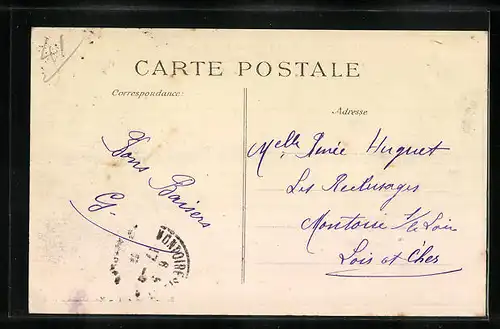 CARTE POSTALE
Correspondance:
Adresse
Bons Baisers
G.
Melle Renée Huguet
Les Reclusages
Montoire s/le Loir
Loir et Cher